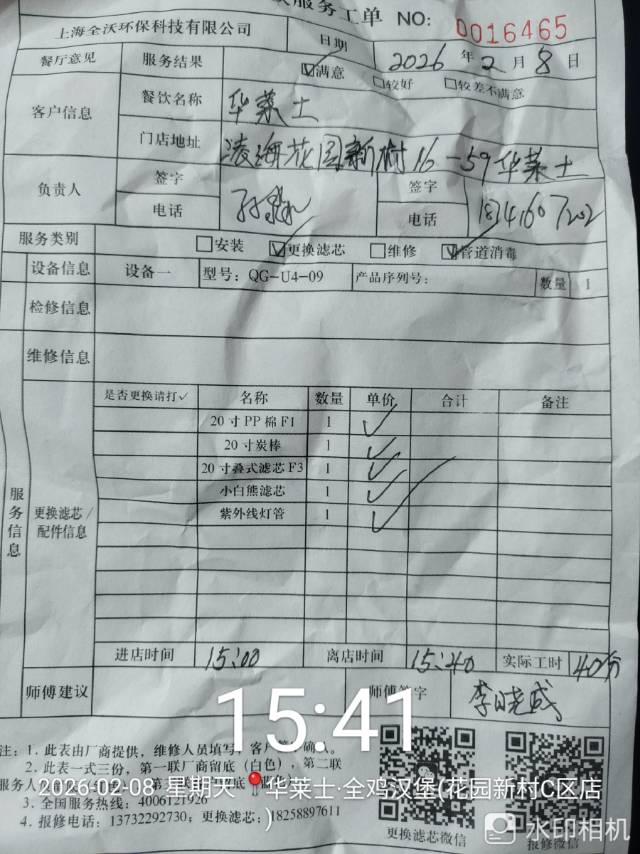 服务工单 NO: 0016465
上海全沃环保科技有限公司 日期 2026年2月8日
餐厅意见 服务结果 ☑满意 □较好 □较差不满意
客户信息 餐饮名称 华莱士
门店地址 凌海花园新村16-59华莱士
负责人 签字 签字
电话 电话
服务类别 □安装 ☑更换滤芯 □维修 ☑管道消毒
设备信息 设备一 型号: QG-U4-09 产品序列号: 数量 1
检修信息
维修信息
服务信息 更换滤芯/配件信息
是否更换请打✓ 名称 数量 单价 合计 备注
20寸PP棉F1 1 ✓
20寸炭棒 1 ✓
20寸叠式滤芯F3 1 ✓
小白熊滤芯 1 ✓
紫外线灯管 1 ✓
进店时间 15:00 离店时间 15:40 实际工时 40分
师傅建议 师傅签字 李晓成
15:41
注: 1. 此表由厂商提供, 维修人员填写, 客户确认。
2. 此表一式三份, 第一联厂商留底(白色), 第二联
服务人
2026-02-08 星期天 华莱士·全鸡汉堡(花园新村C区店)
3. 全国服务热线: 4006121926
4. 报修电话: 13732292730; 更换滤芯: 18258897611
更换滤芯微信 报修微信
水印相机